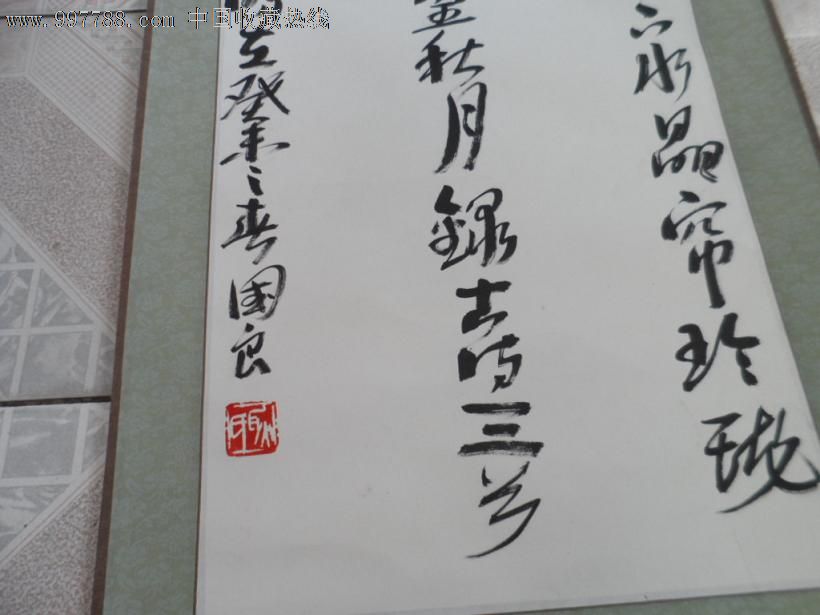 www.997788.com 中国收藏热线
下水晶帘玲珑
望秋月 錄古诗三首
癸未之春国良